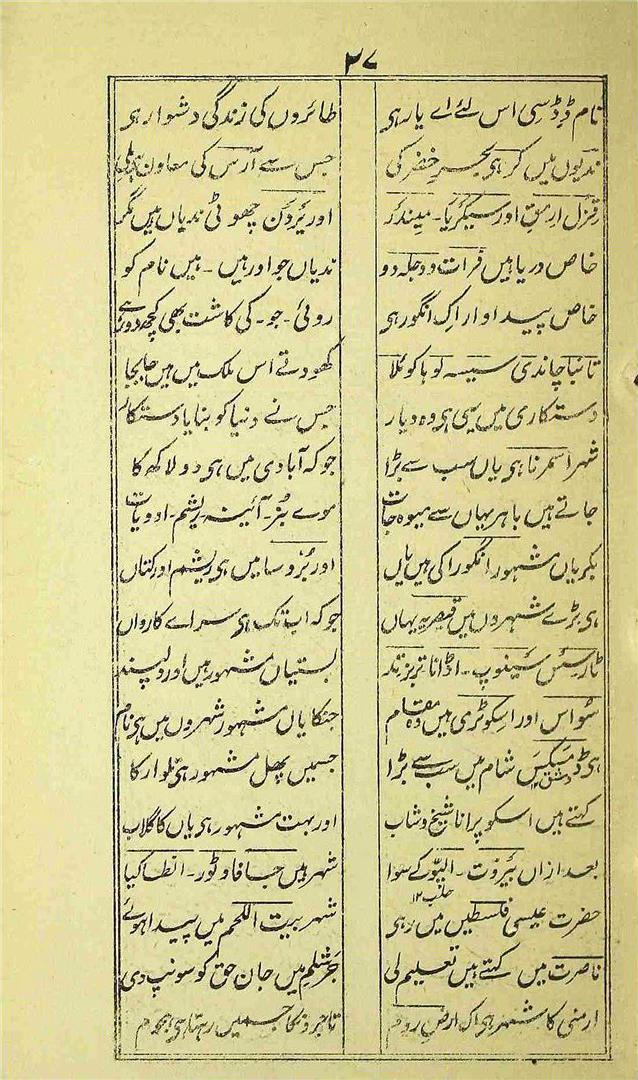 ۲۷
نام ڈِڈسِی اس لئے اے یار ہی طائروں کی زندگی دشوار ہی
ندیوں میں گر ہی بحرِ خضر کی جس سے آرس کی معاون ہی ملی
قزل ارمق اور سیکریا۔ میندَر اور یُردَن چھوٹی ندیاں ہیں مگر
خاص دریا ہیں فرات و دجلہ دو ندیاں جو اور ہیں۔ ہیں نام کو
خاص پیداوار اک انگور ہی روئی۔ جو۔ کی کاشت بھی کچھ دور ہے
تانبا چاندی سیسہ لوہا کوئلا کھودتے اس ملک میں ہیں جابجا
دستکاری میں یہی ہی وہ دیار جس نے دنیا کو بنایا دستکار
شہر اسمرنا ہی یاں سب سے بڑا جو کہ آبادی میں ہی دو لاکھ کا
جاتے ہیں باہر یہاں سے میوہ جات موے بُز۔ آئینہ۔ ریشم۔ ادویات
بکریاں مشہور انگورا کی ہیں یاں اور بُروسا میں ہی ریشم اور کتاں
ہی بڑے شہروں میں قیصریہ یہاں جو کہ اب تک ہی سراے کارواں
ٹارسُس سَینوپ۔ اڈانا تربزند بستیاں مشہور ہیں اور دلپسند
سُواس اور اسکوٹری ہیں وہ مقام جنکا یاں مشہور شہروں میں ہی نام
ہی ڈمیکَس شام میں سب سے بڑا جسمیں پھل مشہور ہی تلوار کا
دمشق ۱۲
کہتے ہیں اسکو پرانا شیخ و شاب اور بہت مشہور ہی یاں کا گلاب
بعد ازاں بیرُوت۔ الیپّو کے سوا شہر ہیں جافا وٹور۔ انطاکیا
حلب ۱۲
حضرت عیسیٰ فلسطیں میں رہی شہر بیت اللحم میں پیدا ہوئے
ناصرت میں کہتے ہیں تعلیم لی جرشلم میں جان حق کو سونپ دی
ارمنی کا شہر ہی اک ارض روم تاجرونکا جسمیں رہتا ہی ہجوم